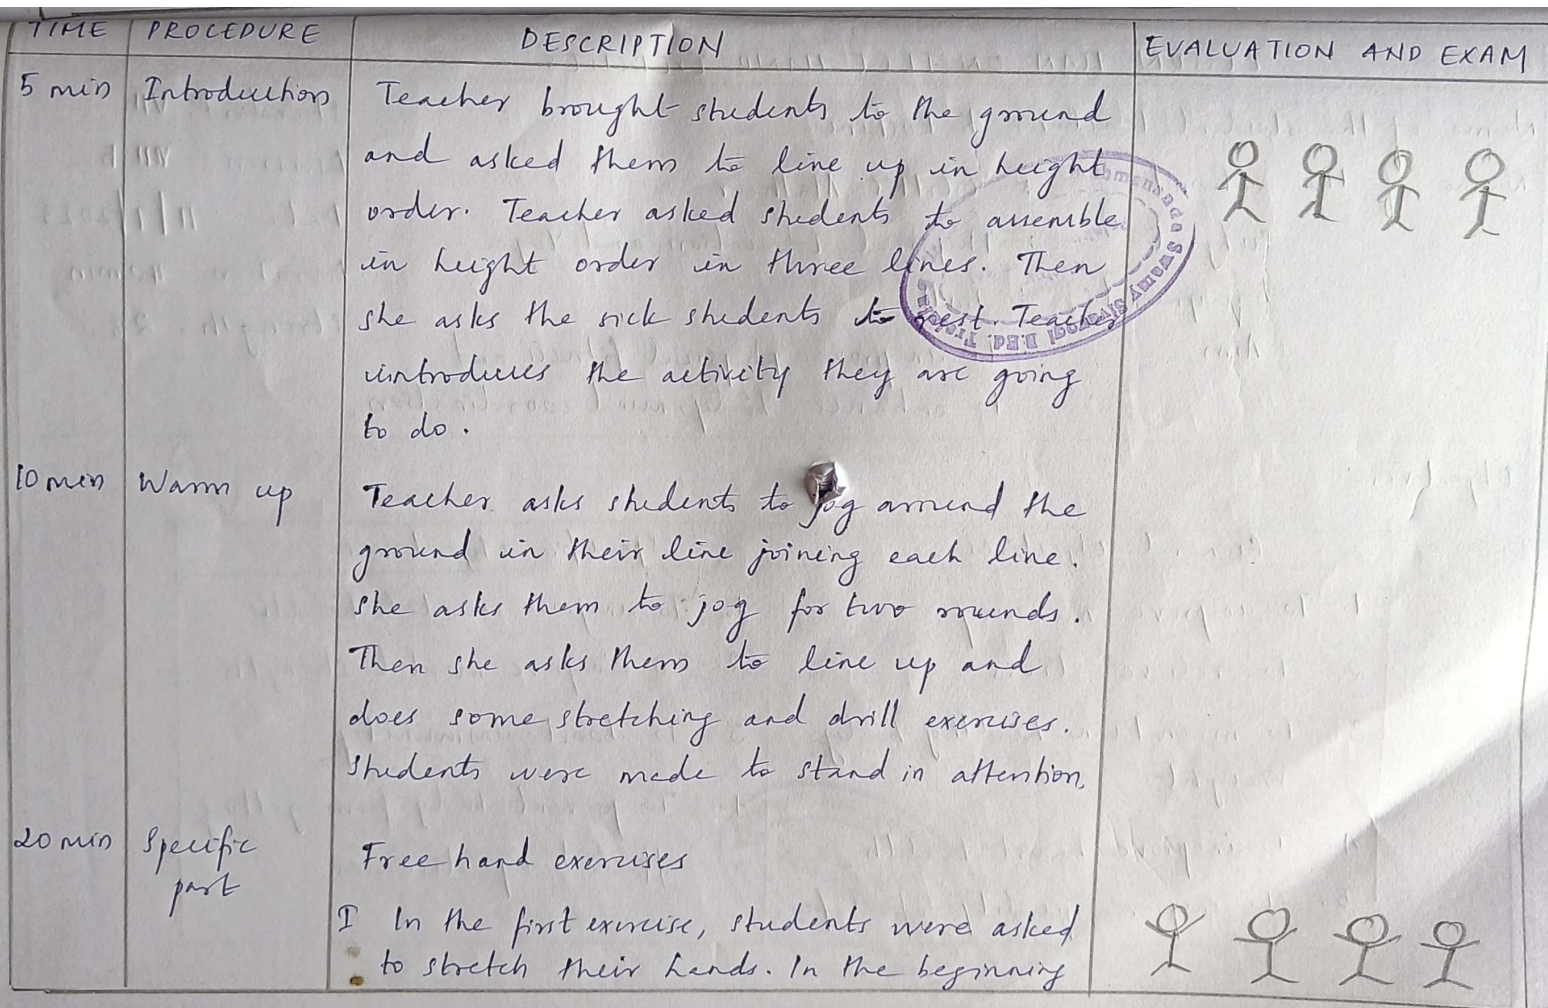 TIME PROCEDURE DESCRIPTION EVALUATION AND EXAM
5 min Introduction Teacher brought students to the ground
and asked them to line up in height
order. Teacher asked students to assemble
in height order in three lines. Then
she asks the sick students to rest. Teacher
introduces the activity they are going
to do.
10 min Warm up Teacher asks students to jog around the
ground in their line joining each line.
She asks them to jog for two rounds.
Then she asks them to line up and
does some stretching and drill exercises.
Students were made to stand in attention.
20 min Specific Free hand exercises
part
I In the first exercise, students were asked
to stretch their hands. In the beginning
Swamy Sivayogi B.Ed.